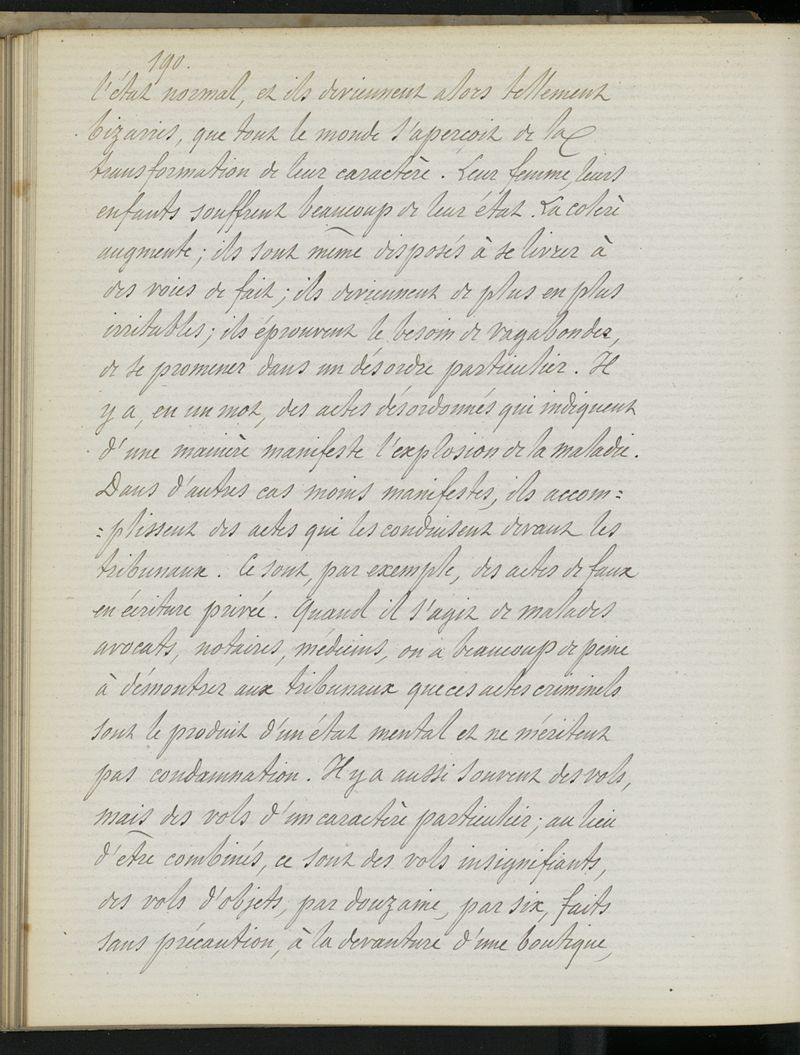 190.
l'état normal, et ils deviennent alors tellement
bizarres, que tout le monde s'aperçoit de la
transformation de leur caractère. Leur femme, leurs
enfants souffrent beaucoup de leur état. La colère
augmente; ils sont même disposés à se livrer à
des voies de fait; ils deviennent de plus en plus
irritables; ils éprouvent le besoin de vagabonder,
de se promener dans un désordre particulier. Il
y a, en un mot, des actes désordonnés qui indiquent
d'une manière manifeste l'explosion de la maladie.
Dans d'autres cas moins manifestes, ils accom=
=plissent des actes qui les conduisent devant les
tribunaux. Ce sont, par exemple, des actes de faux
en écriture privée. Quand il s'agit de malades
avocats, notaires, médecins, on a beaucoup de peine
à démontrer aux tribunaux que ces actes criminels
sont le produit d'un état mental et ne méritent
pas condamnation. Il y a aussi souvent des vols,
mais des vols d'un caractère particulier; au lieu
d'être combinés, ce sont des vols insignifiants,
des vols d'objets, par douzaine, par six, faits
sans précaution, à la devanture d'une boutique,